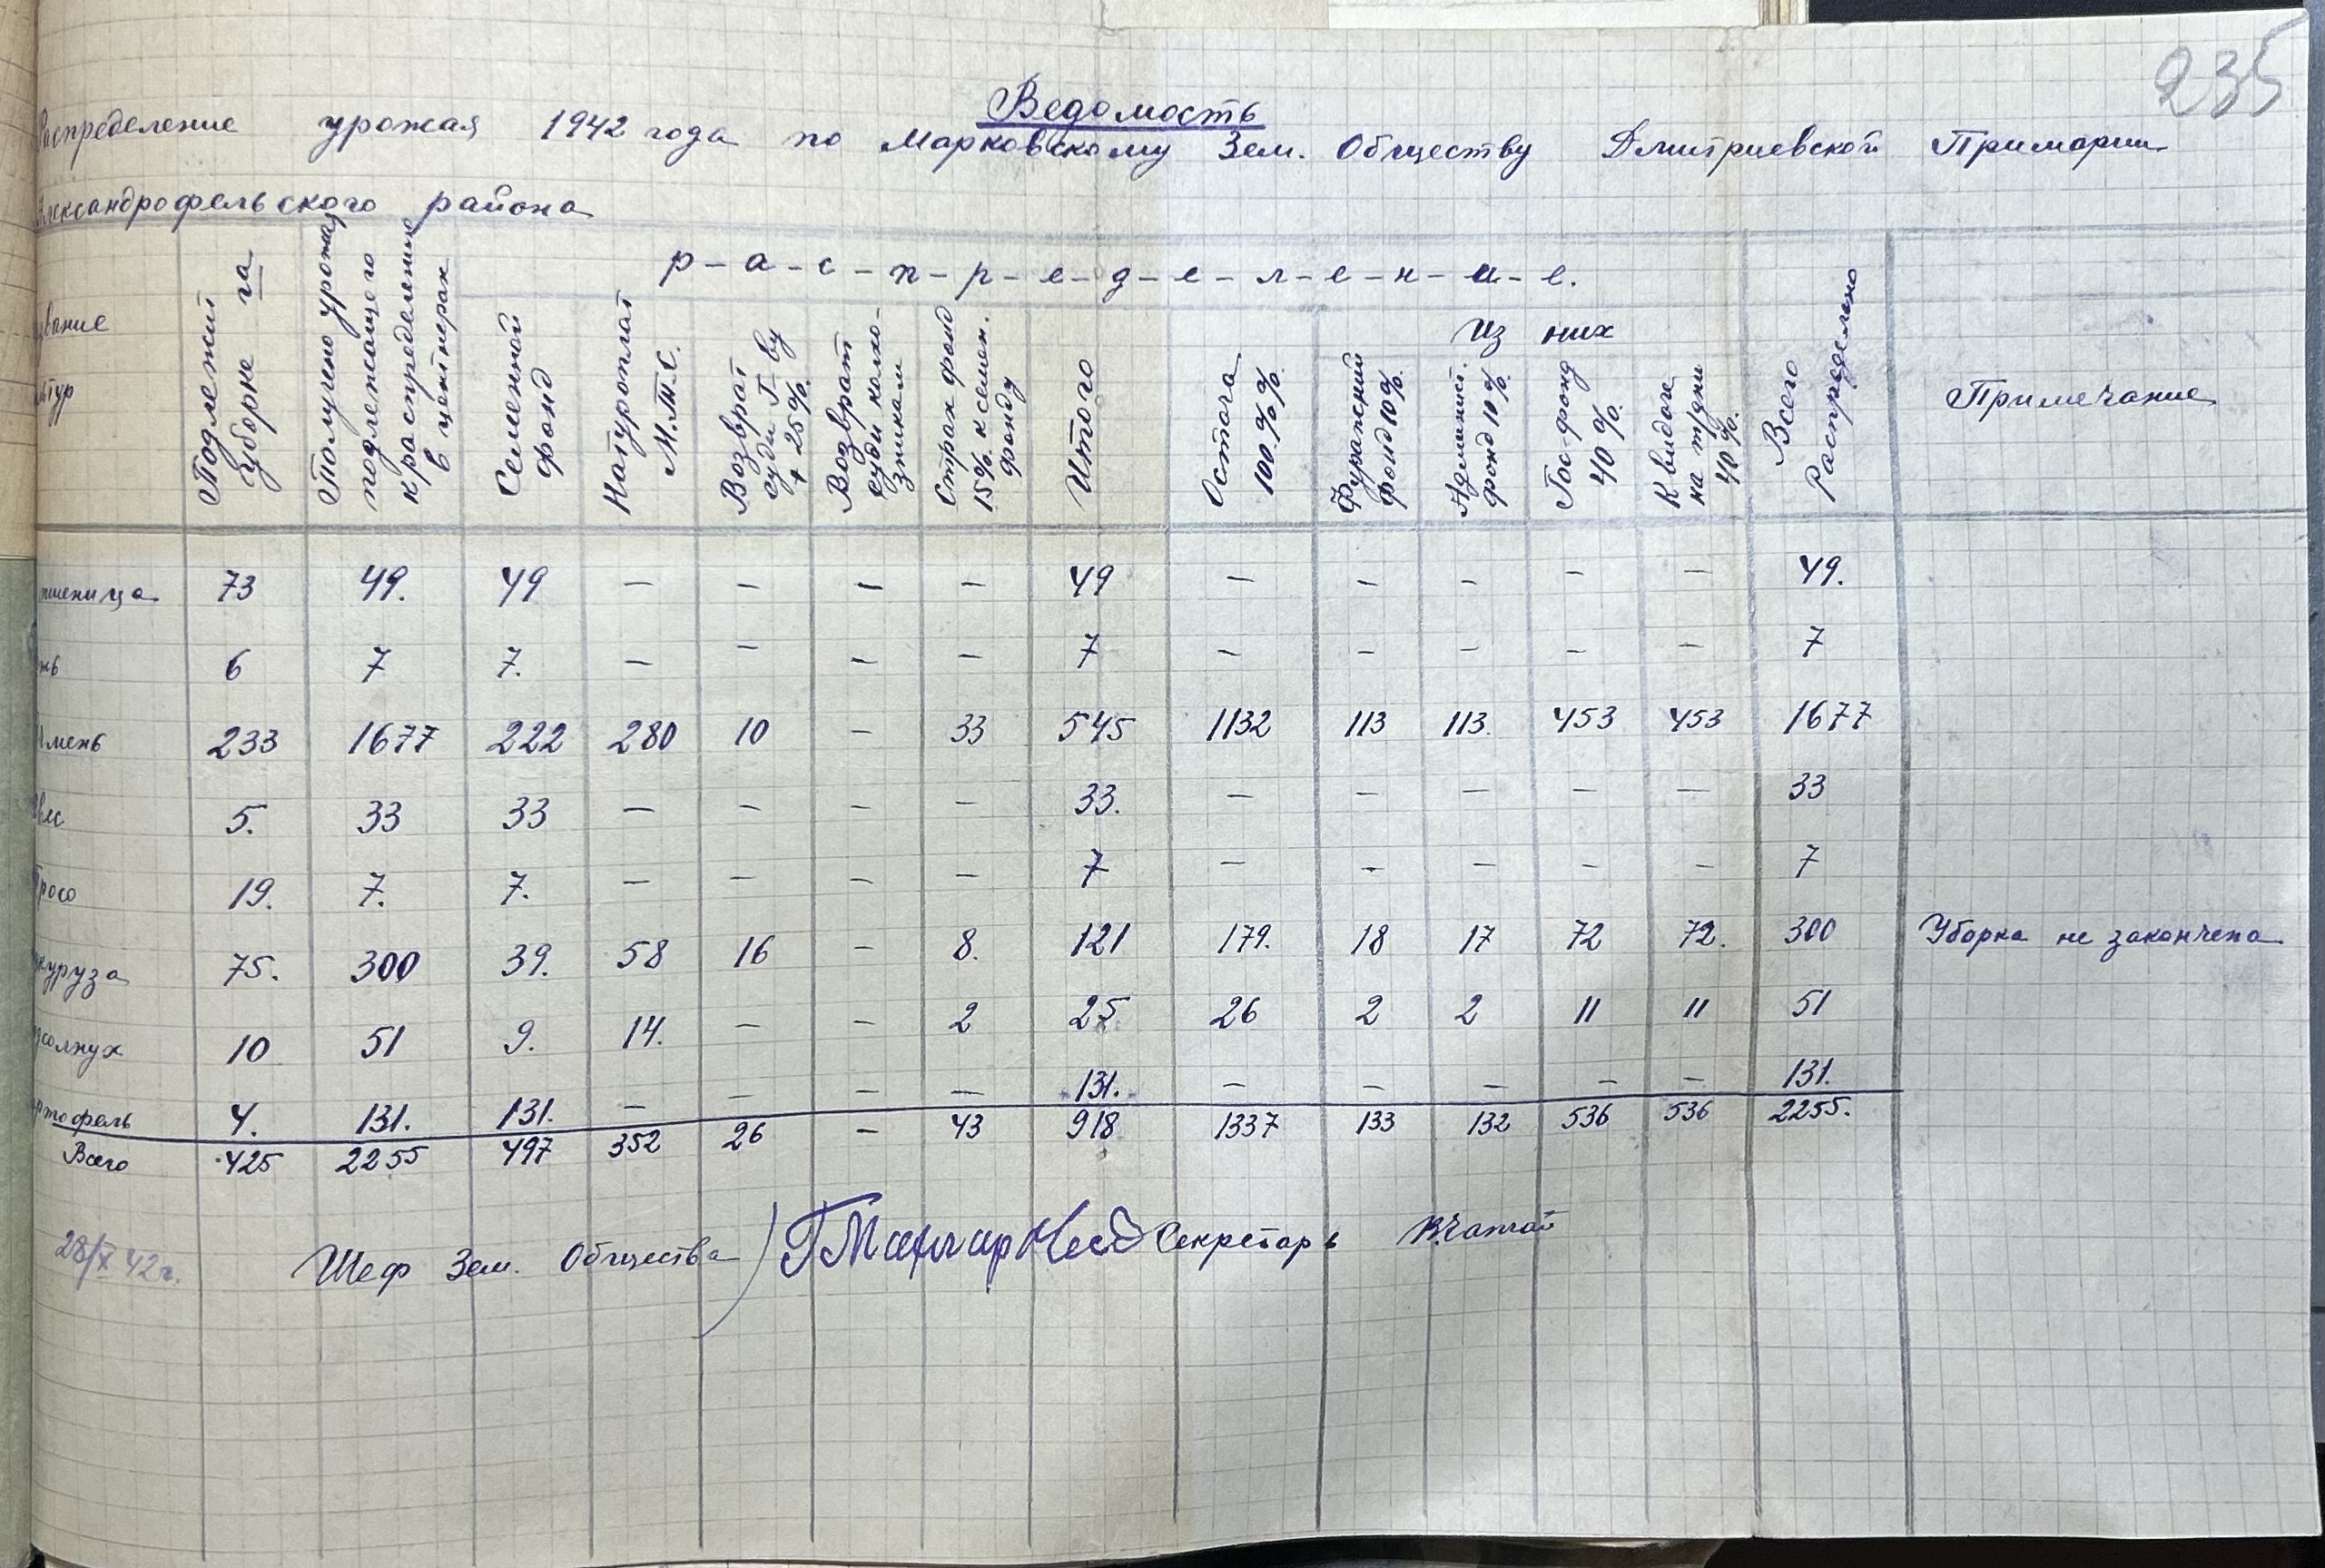 235
Ведомость
Распределение урожая 1942 года по Марковскому Зем. Обществу Дмитриевской Примарии
Александрофельского района
вание
тур
Подлежит уборке га
Получено урожая подлежащего к распределению в центнерах
р-а-с-п-р-е-д-е-л-е-н-и-е.
Семенной фонд
Натуроплат М.Т.С.
Возврат суды Г-ву + 25%
Возврат суды колхозникам
Страх фонд 15% к семен. фонду
Итого
Остача 100%%
Из них
Фуражний фонд 10%
Админист. фонд 10%
Гос-фонд 40%
К видаче на т/дни 40%
Всего Распределено
Примечание
пшеница 73 49. 49 — — — — 49 — — — — — 49.
жь 6 7 7. — — — — 7 — — — — — 7
чмень 233 1677 222 280 10 — 33 545 1132 113 113. 453 453 1677
овес 5. 33 33 — — — — 33. — — — — — 33
Просо 19. 7. 7. — — — — 7 — — — — — 7
куруза 75. 300 39. 58 16 — 8. 121 179. 18 17 72 72. 300 Уборка не закончена
дсолнух 10 51 9. 14. — — 2 25 26 2 2 11 11 51
артофель 4. 131. 131. — — — — 131. — — — — — 131.
Всего 425 2255 497 352 26 — 43 918 1337 133 132 536 536 2255.
28/X 42г.
Шеф Зем. Общества Секретарь